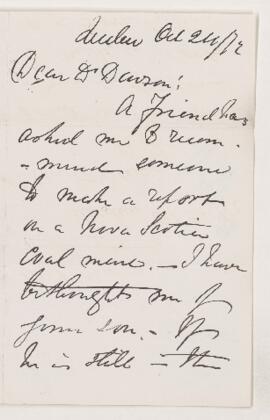 Quebec Oct 24/72
Dear Dr Dawson;
A friend has
asked me to recom-
-mend someone
to make a report
on a Nova Scotia
coal mine. — I have
bethought me of
your son. — If
he is still — the